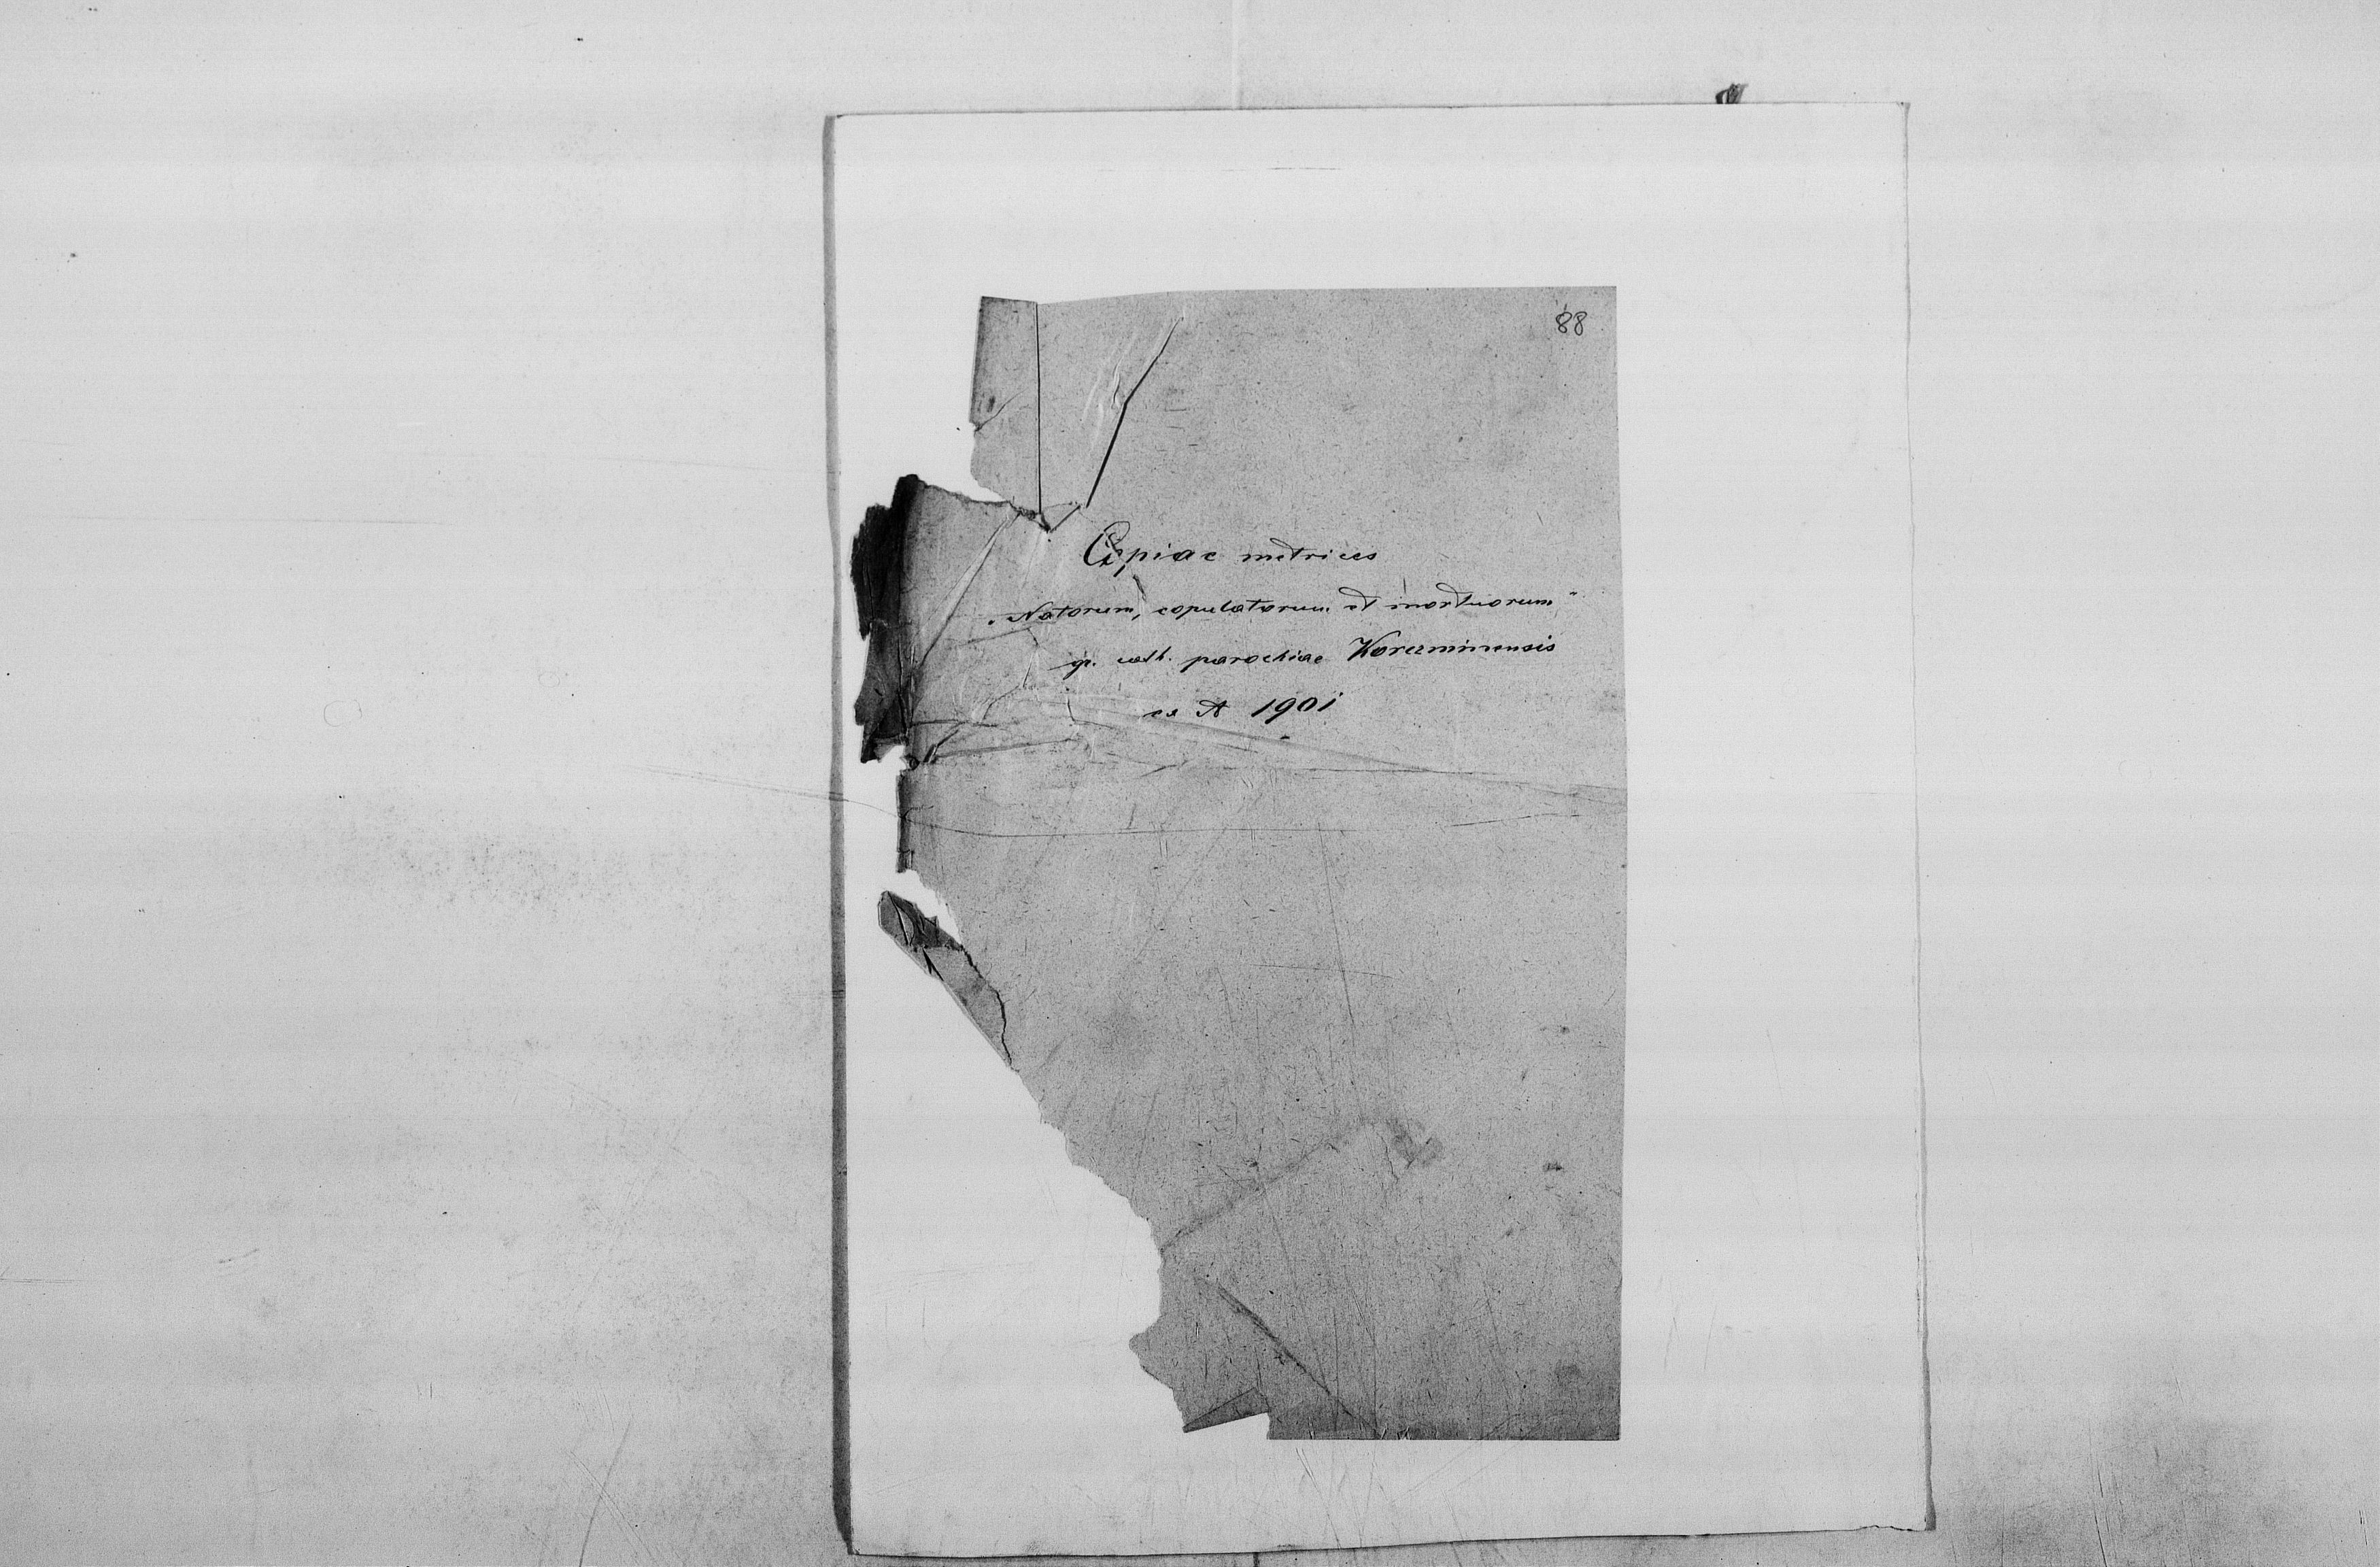 88
Copiae metrices
"Natorum, copulatorum et mortuorum"
gr. cath. parochiae Korczminensis
ex A 1901